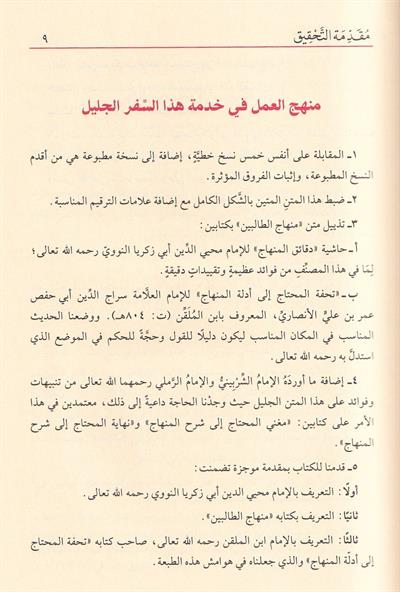 مُقَدِّمَة التَّحْقِيق
٩
منهج العمل في خدمة هذا السِّفر الجليل
١ـ المقابلة على أنفس خمس نسخ خطيَّةٍ، إضافة إلى نسخة مطبوعة هي من أقدم
النسخ المطبوعة، وإثبات الفروق المؤثرة.
٢ـ ضبط هذا المتن المتين بالشَّكل الكامل مع إضافة علامات الترقيم المناسبة.
٣ـ تذييل متن «منهاج الطالبين» بكتابين:
أـ حاشية «دقائق المنهاج» للإمام محيي الدِّين أبي زكريا النوويّ رحمه الله تعالى؛
لِمَا في هذا المصنَّفِ من فوائد عظيمةٍ وتقييداتٍ دقيقةٍ.
ب ـ «تحفة المحتاج إلى أدلة المنهاج» للإمام العلاَّمة سراج الدِّين أبي حفص
عمر بن عليٍّ الأنصاريِّ، المعروف بابن المُلَقِّن (ت: ٨٠٤هـ). ووضعنا الحديث
المناسب في المكان المناسب ليكون دليلًا للقول وحجَّةً للحكم في الموضع الذي
استدلَّ به رحمه الله تعالى.
٤ـ إضافة ما أوردَهُ الإمامُ الشِّرْبِينيُّ والإمامُ الرَّملي رحمهما الله تعالى من تنبيهات
وفوائد على هذا المتن الجليل حيث وجدْنا الحاجة داعيةً إلى ذلك، معتمدين في هذا
الأمر على كتابين: «مغني المحتاج إلى شرح المنهاج» و«نهاية المحتاج إلى شرح
المنهاج».
٥ـ قدمنا للكتاب بمقدمة موجزة تضمنت:
أولًا: التعريف بالإمام محيي الدين أبي زكريا النووي رحمه الله تعالى.
ثانيًا: التعريف بكتابه «منهاج الطالبين».
ثالثًا: التعريف بالإمام ابن الملقن رحمه الله تعالى، صاحب كتابه «تحفة المحتاج
إلى أدلَّة المنهاج» والذي جعلناه في هوامش هذه الطبعة.